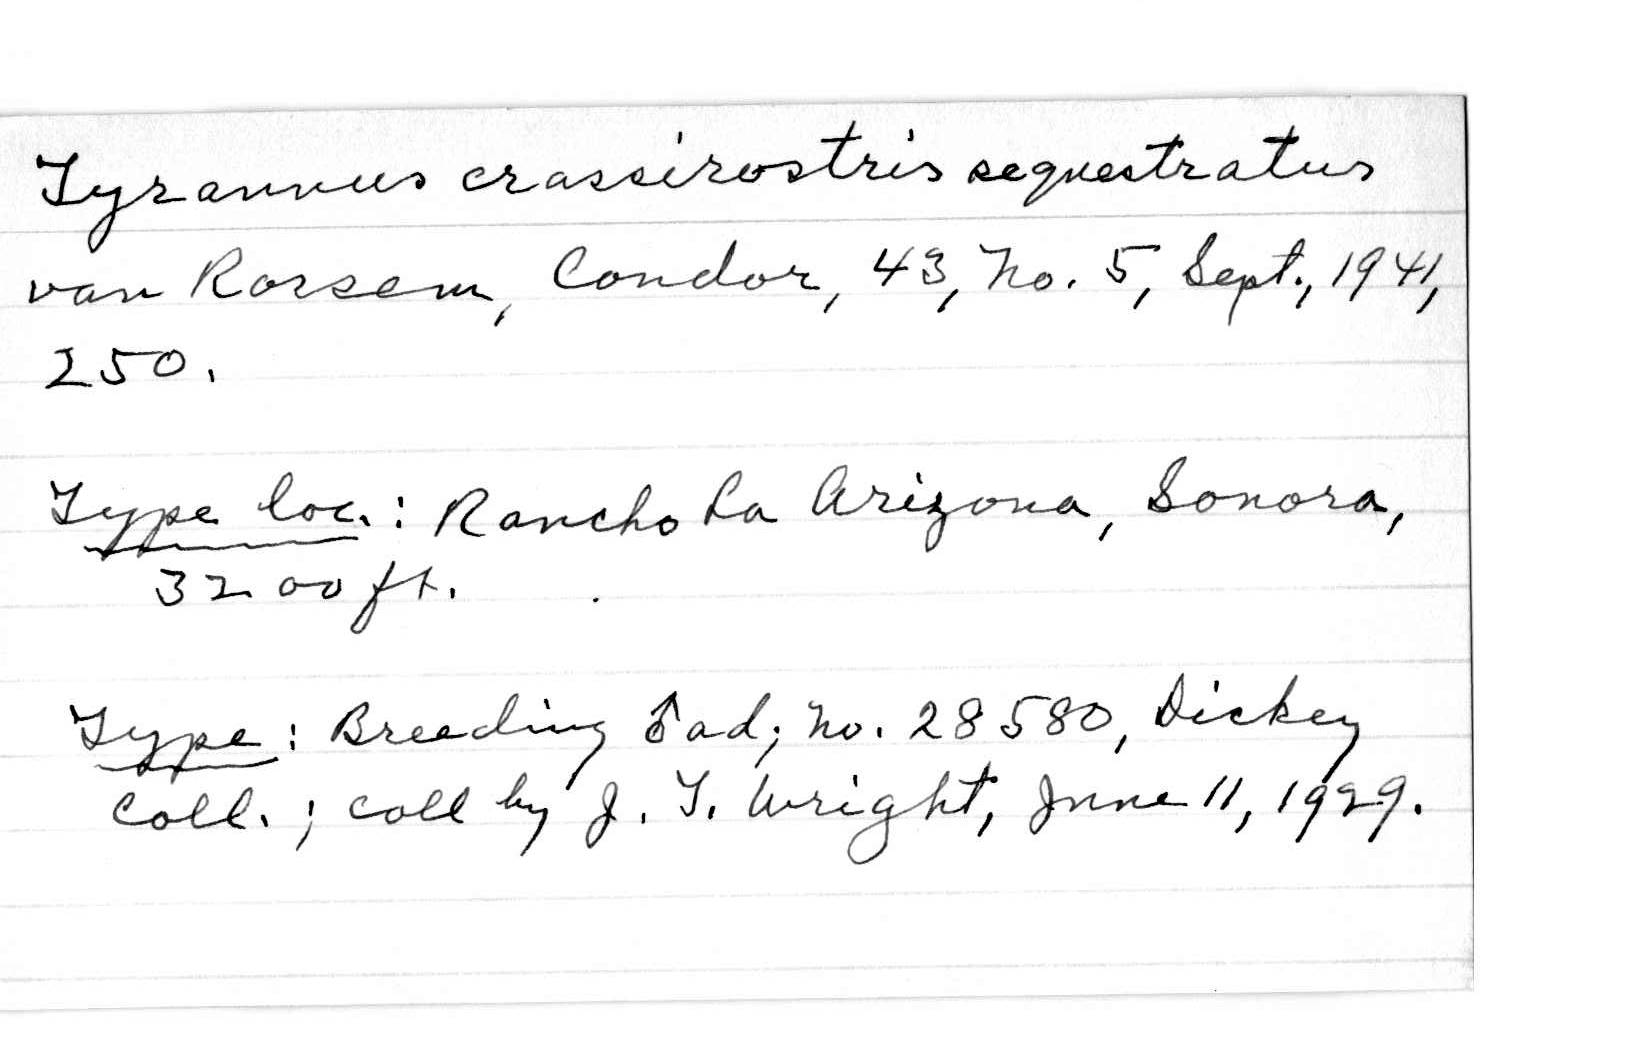 Tyrannus crassirostris sequestratus
van Rossem, Condor, 43, No. 5, Sept., 1941,
250.
Type loc.: Rancho La Arizona, Sonora,
3200 ft.
Type: Breeding ♂ ad; No. 28580, Dickey
Coll.; coll by J. T. Wright, June 11, 1929.